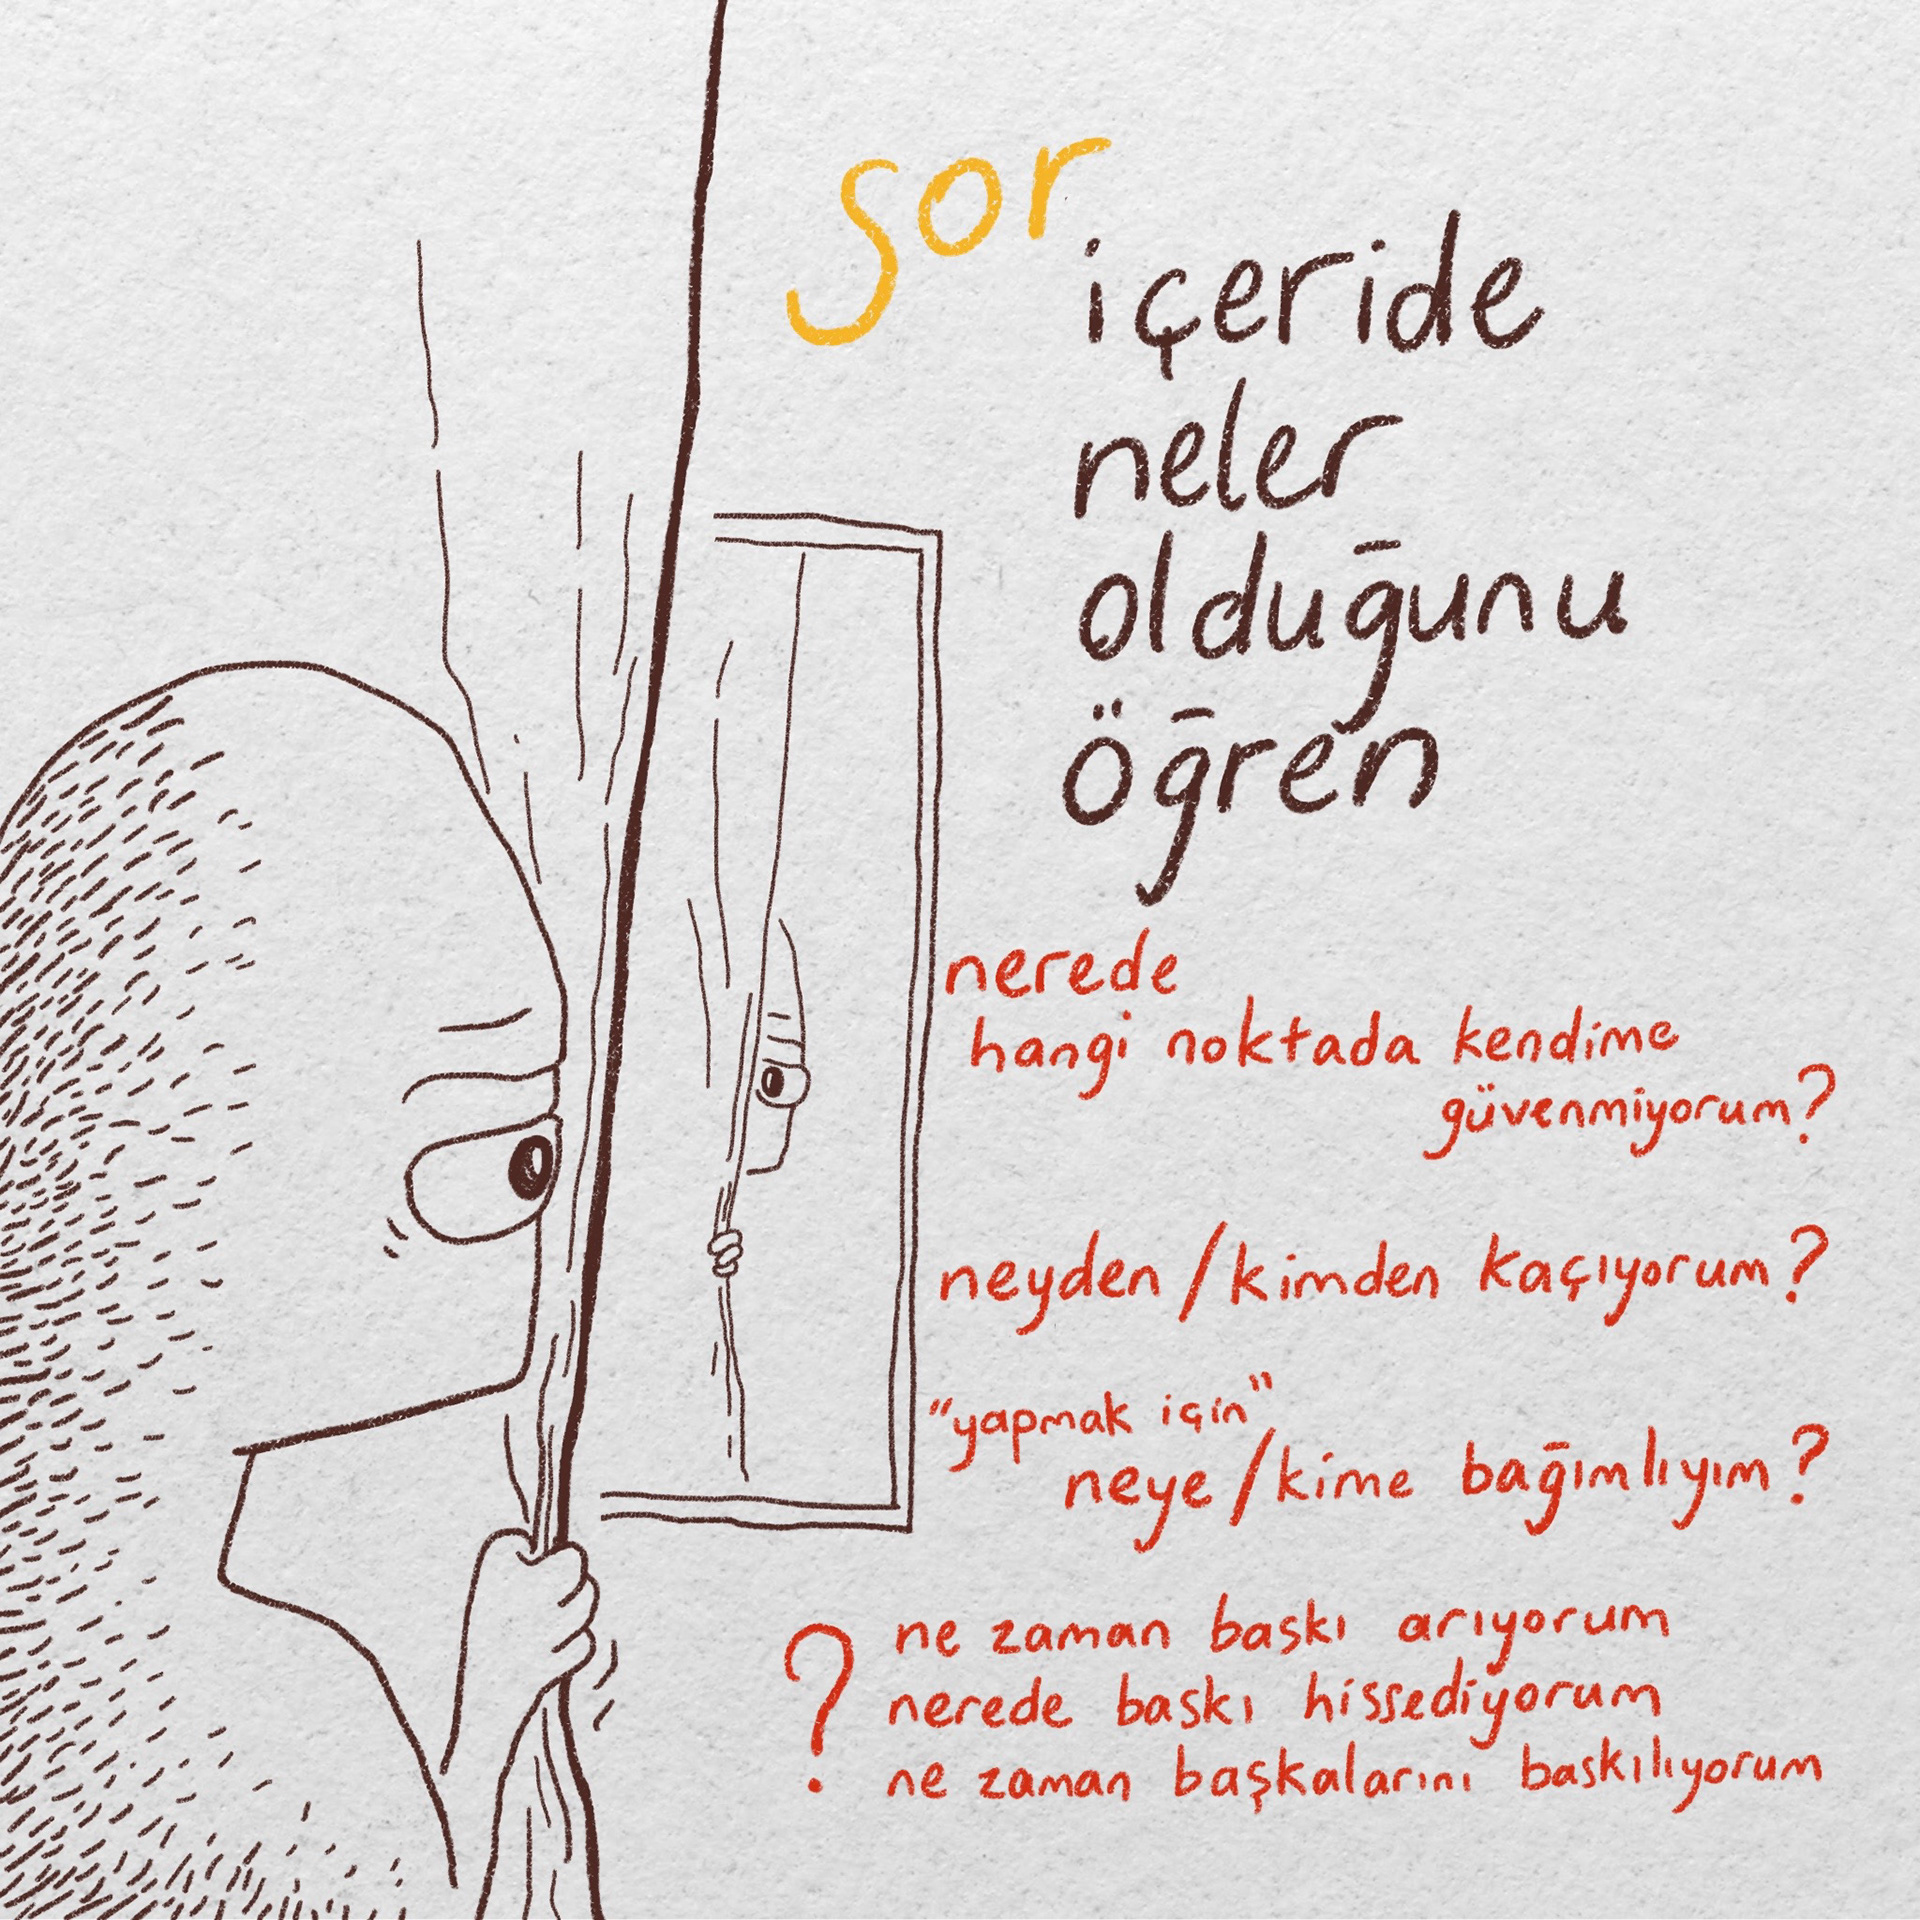 sor
içeride
neler
olduğunu
öğren
nerede
hangi noktada kendime
güvenmiyorum?
neyden / kimden kaçıyorum?
"yapmak için"
neye / kime bağımlıyım?
? ne zaman baskı arıyorum
nerede baskı hissediyorum
ne zaman başkalarını baskılıyorum